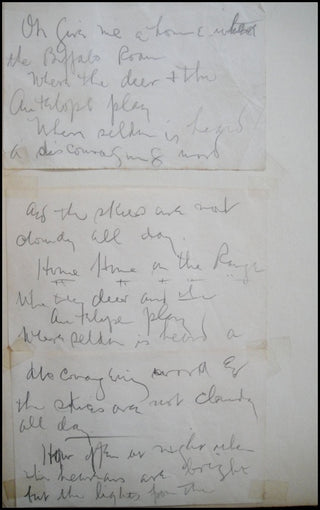 Oh Give me a home where
the Buffalo Roam
Where the deer & the
Antelope play
Where seldom is heard
a discouraging word
And the skies are not
cloudy all day.
Home Home on the Range
Where the deer and the
Antelope play
Where seldom is heard a
discouraging word &
the skies are not cloudy
all day
How often at night when
the heavens are bright
but the lights from the